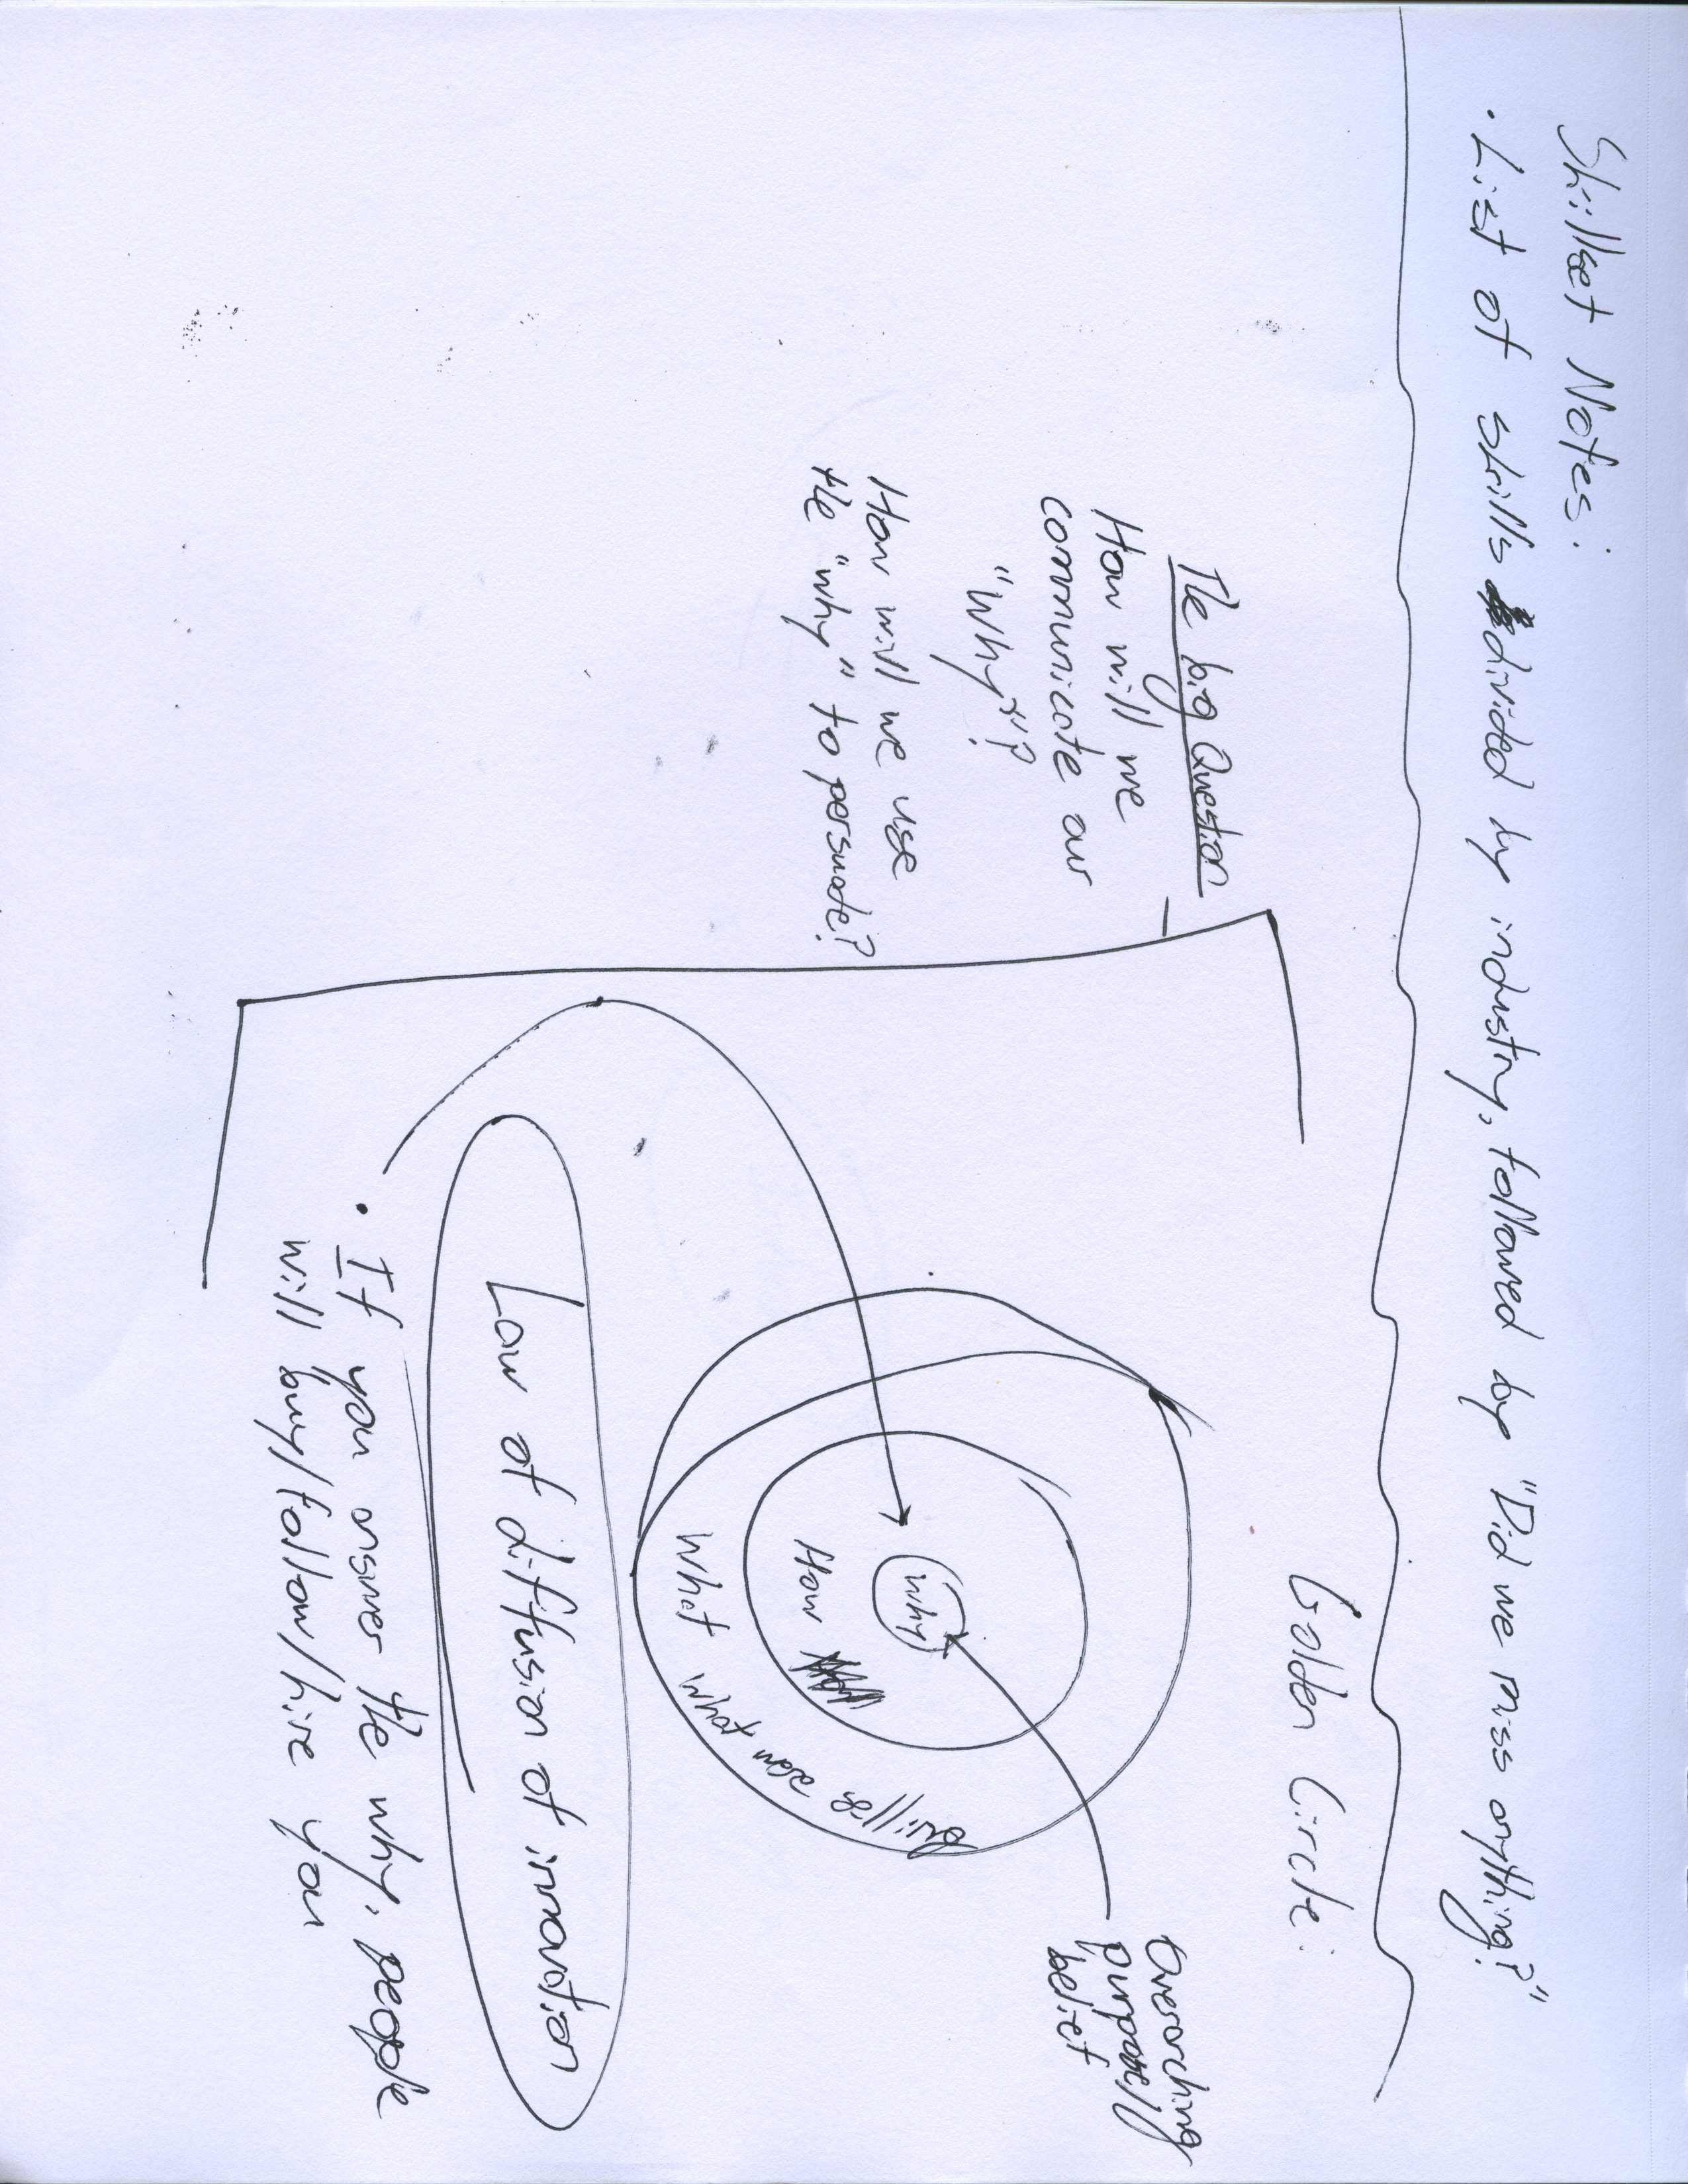 Skillset Notes:
· List of skills divided by industry, followed by "Did we miss anything?"
Golden Circle:
The big Question
How will we
communicate our
"Why"?
How will we use
the "why" to persuade?
overarching
purpose//
belief
why
How
What
· If you answer the why, people
will buy/follow/hire you
Law of diffusion of innovation